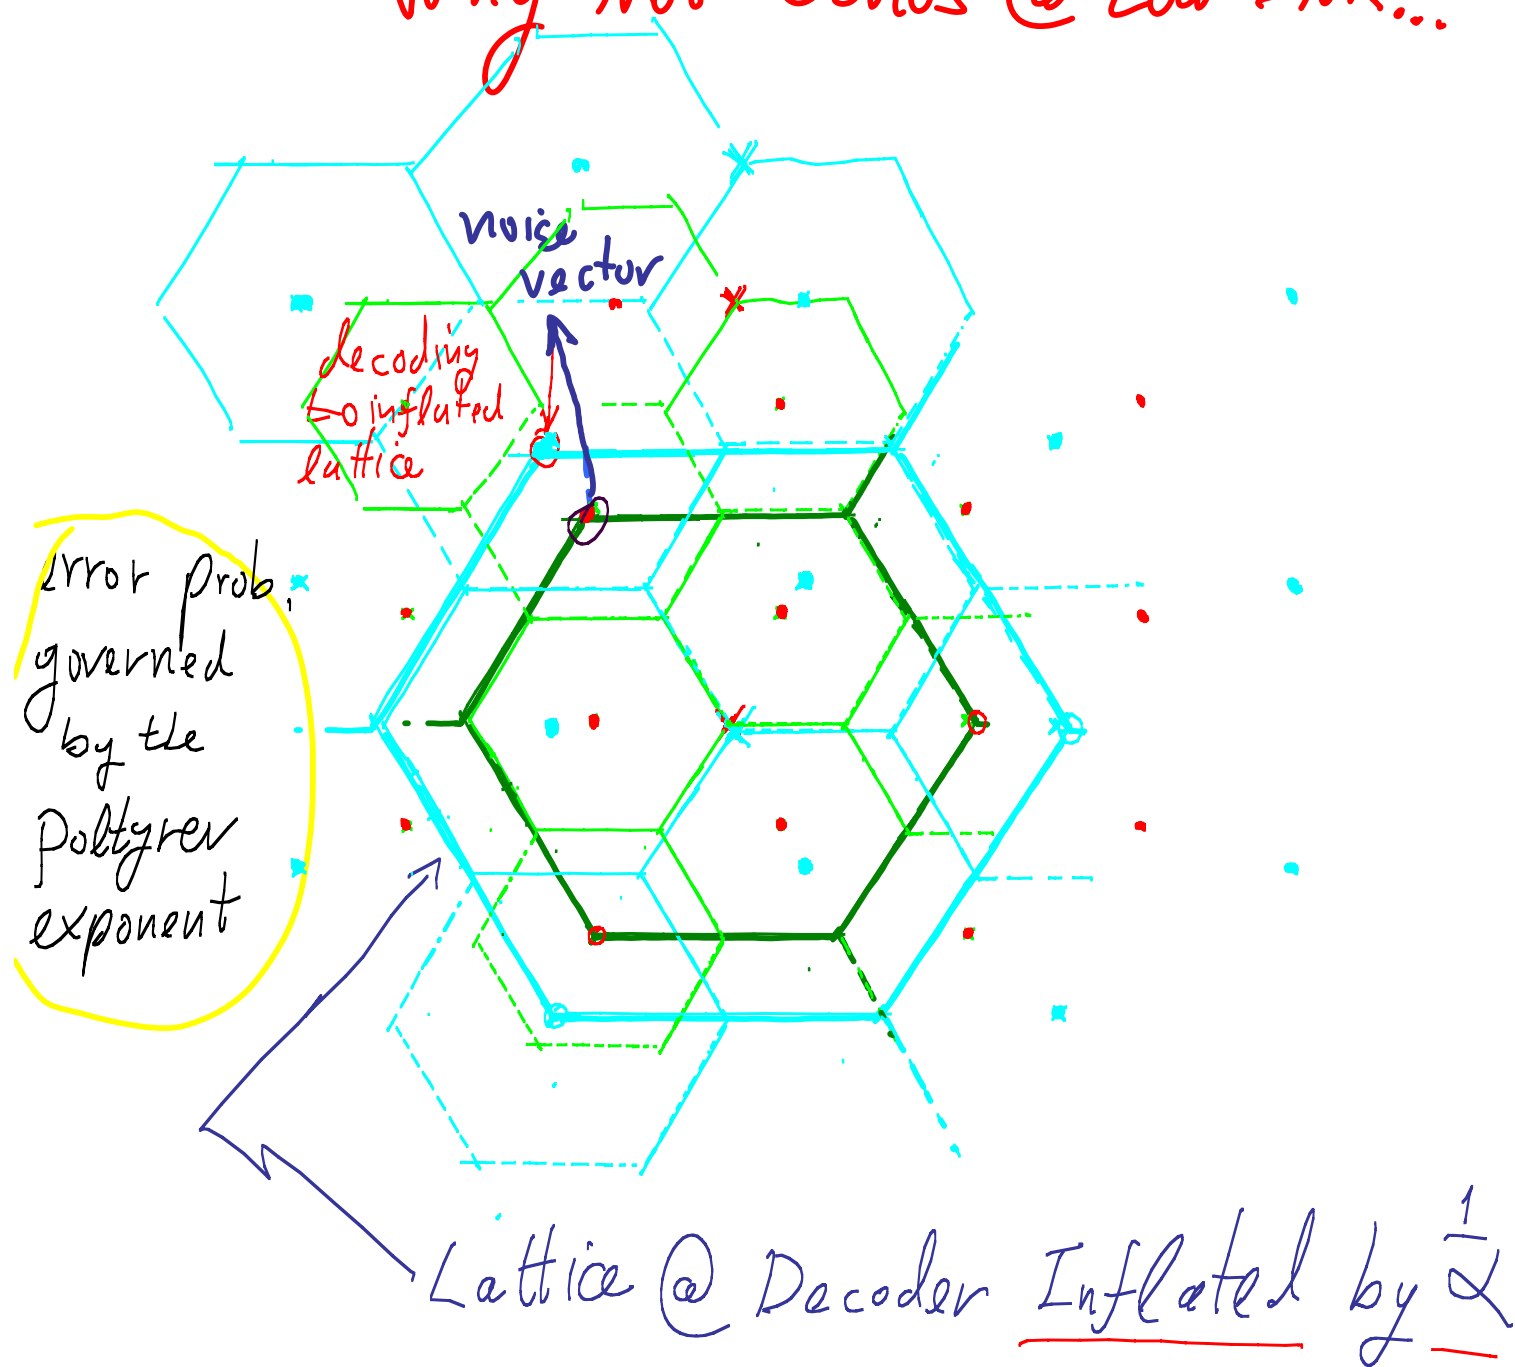 noise
vector
decoding
inflated
lattice
error prob.
governed
by the
Poltyrev
exponent
Lattice @ Decoder Inflated by 1/α